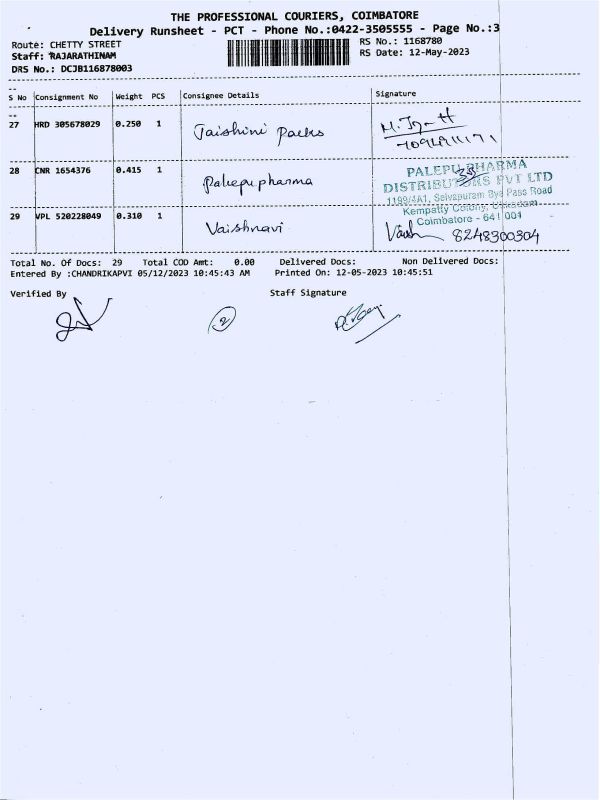 THE PROFESSIONAL COURIERS, COIMBATORE
Delivery Runsheet - PCT - Phone No.:0422-3505555 - Page No.:3
Route: CHETTY STREET
RS No.: 1168780
Staff: RAJARATHINAM
RS Date: 12-May-2023
DRS No.: DCJB116878003
S No Consignment No Weight PCS Consignee Details Signature
27 HRD 305678029 0.250 1 Jaishini packs
28 CNR 1654376 0.415 1 Palepu pharma
PALEPU PHARMA
DISTRIBUTORS PVT LTD
1199/4A1, Selvapuram Bye Pass Road
Kempatty Colony,
Coimbatore - 641 001
29 VPL 520228049 0.310 1 Vaishnavi
8248300304
Total No. Of Docs: 29 Total COD Amt: 0.00 Delivered Docs: Non Delivered Docs:
Entered By :CHANDRIKAPVI 05/12/2023 10:45:43 AM Printed On: 12-05-2023 10:45:51
Verified By Staff Signature
2